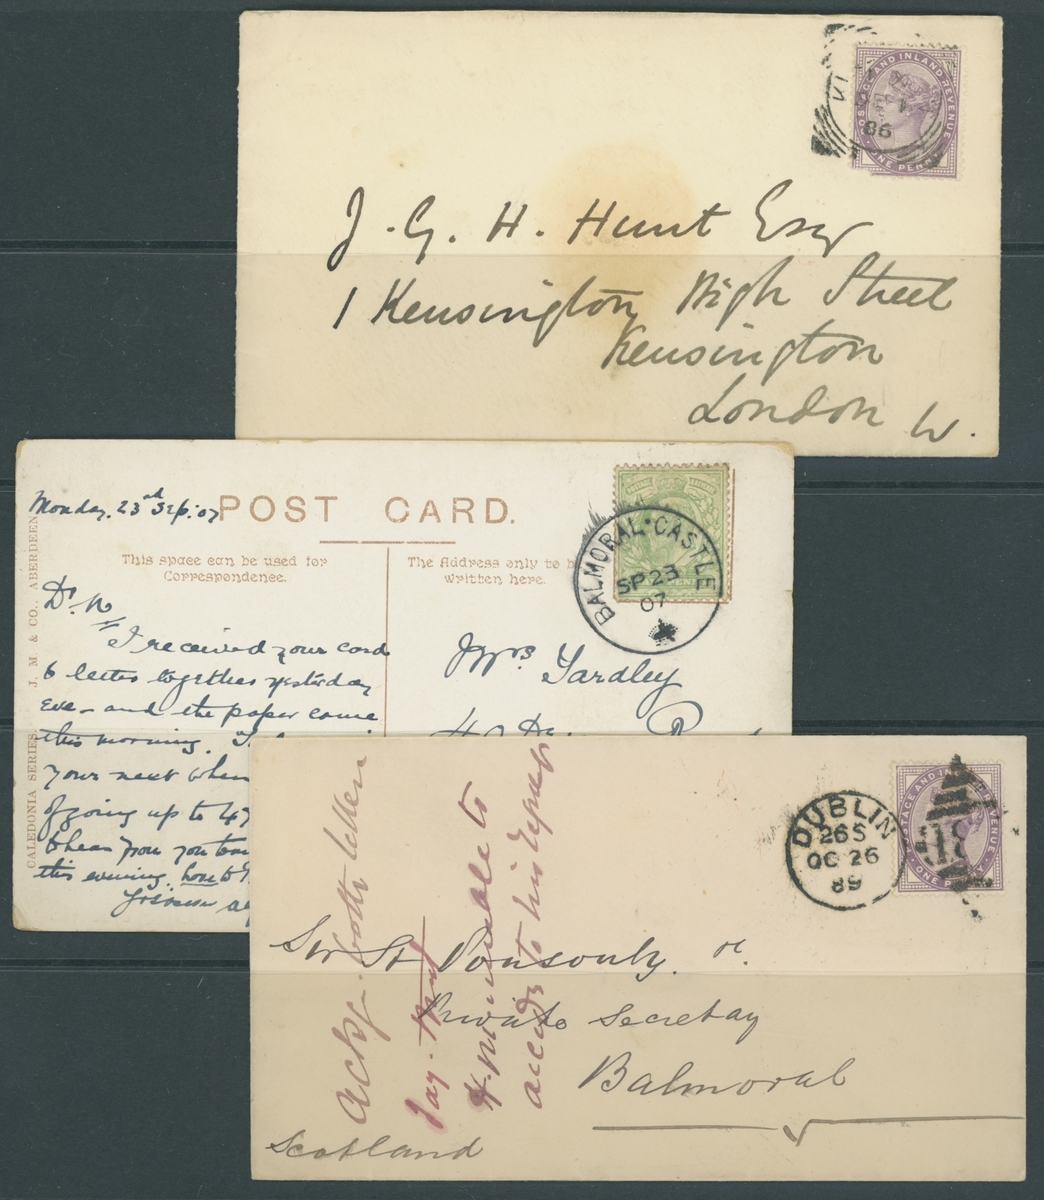 J. G. H. Hunt Esq
1 Kensington High Street
Kensington
London W.
POSTAGE AND INLAND REVENUE
ONE PENNY
86
Monday, 23rd Sep. 07
POST CARD.
This space can be used for
Correspondence.
The Address only to be
written here.
BALMORAL·CASTLE
SP 23
07
CALEDONIA SERIES. J. M. & CO., ABERDEEN
Dr. N
I received your card
& letter together yesterday
eve - and the paper came
this morning.
your next when
of going up to 47
this evening.
Yardley
DUBLIN
26 S
OC 26
89
POSTAGE AND INLAND REVENUE
ONE PENNY
Ackg. both letters
Say. that
it is impossible to
accede to his request
Sir H Ponsonby.
Private Secretay
Balmoral
Scotland